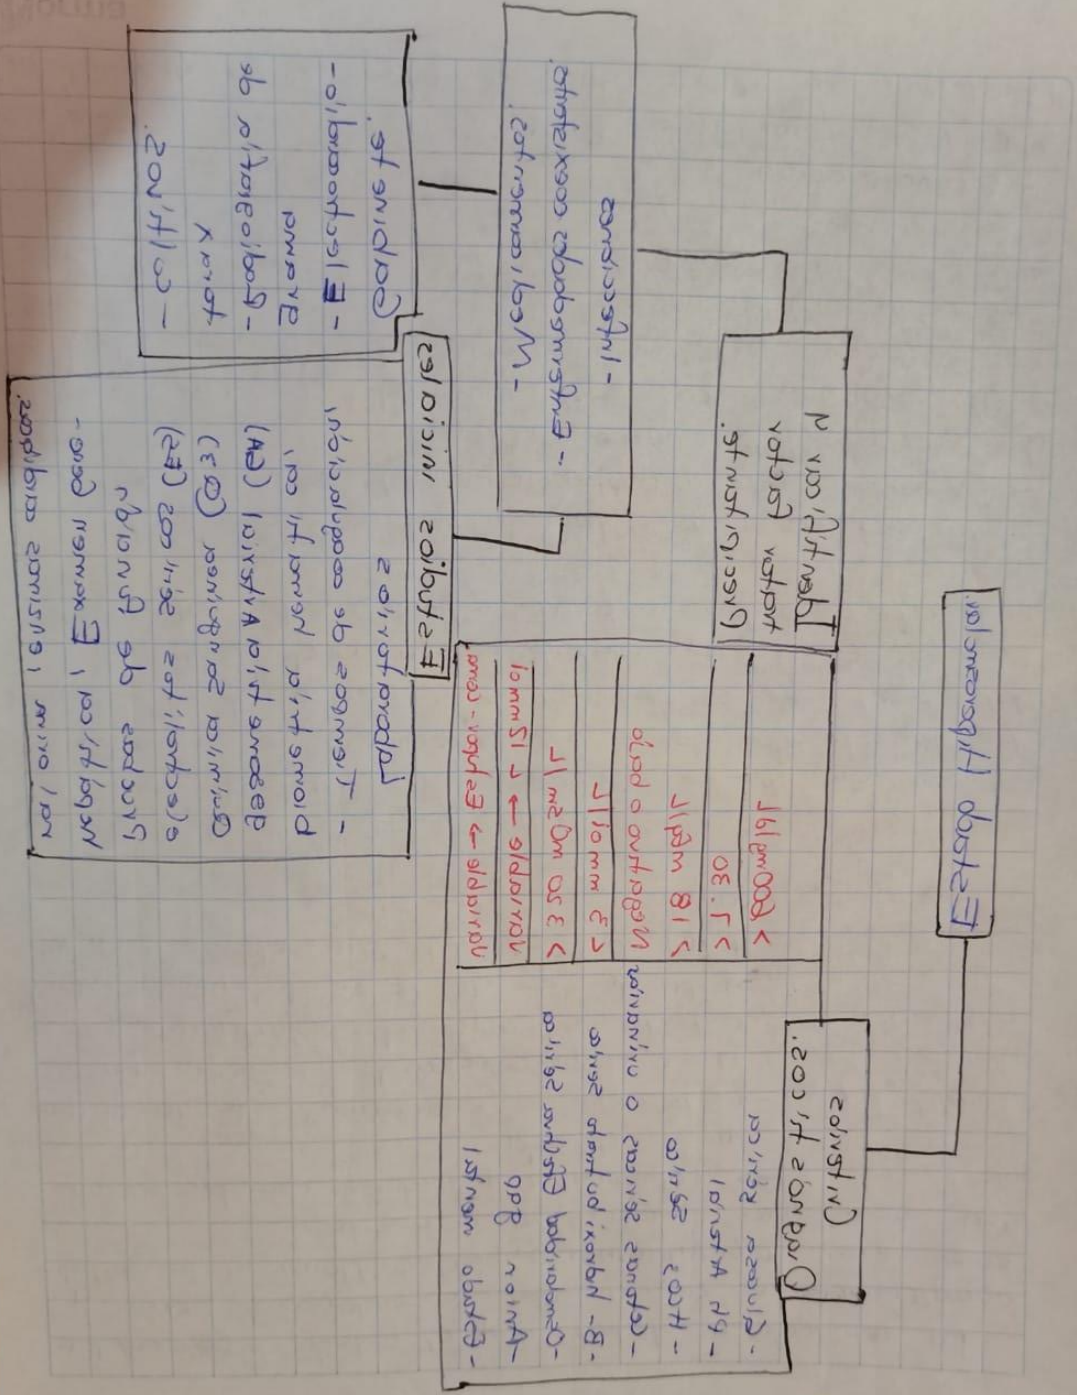 Estado Hiperosmolar.
Criterios
Diagnósticos.
- Glucosa sérica >600mg/dl
- pH Arterial >7.30
- HCO3 sérico >18 mEq/L
- Cetonas séricas o urinarias Negativo o bajo
- B-hidroxibutirato sérico <3 mmol/L
- Osmolaridad Efectiva sérica >320 mOsm/L
- Anion gap variable → 12mmol
- Estado mental variable → Estupor-coma
Identificar
factor
precipitante.
- Infecciones
- Enfermedades coexistentes.
- Medicamentos.
Estudios iniciales
Laboratorios
- Tiempos de coagulación,
Biometría hemática,
gasometría Arterial (GA)
Química sanguínea (QS)
electrolitos séricos (ES)
Pruebas de función
hepática, Examen gene-
ral orina, enzimas cardiacas.
Gabinete.
- Electrocardio-
grama
- Radiografía de
torax
- Cultivos.